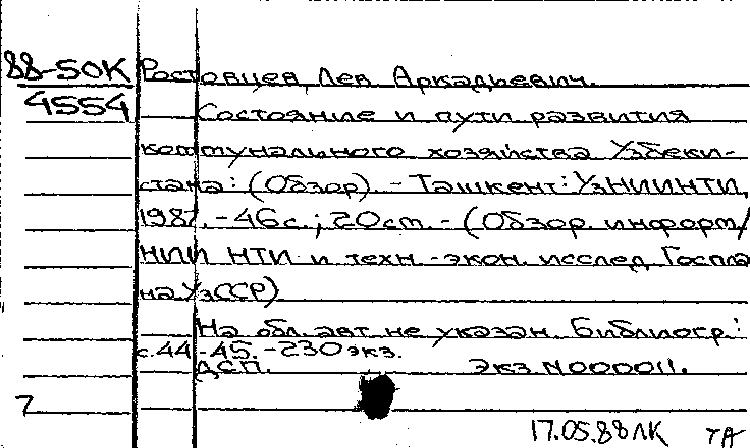 88-50К Ростовцев, Лев Аркадьевич.
4554 Состояние и пути развития
коммунального хозяйства Узбеки-
стана: (Обзор). - Ташкент: УзНИИНТИ,
1987. - 46 с.; 20 см. - (Обзор. информ/
НИИ НТИ и техн.-экон. исслед. Госпла
на УзССР)
На обл. авт. не указан. Библиогр.:
с. 44-45. - 230 экз.
ДСП. Экз. N 000011.
7
17.05.88 ЛК ТА